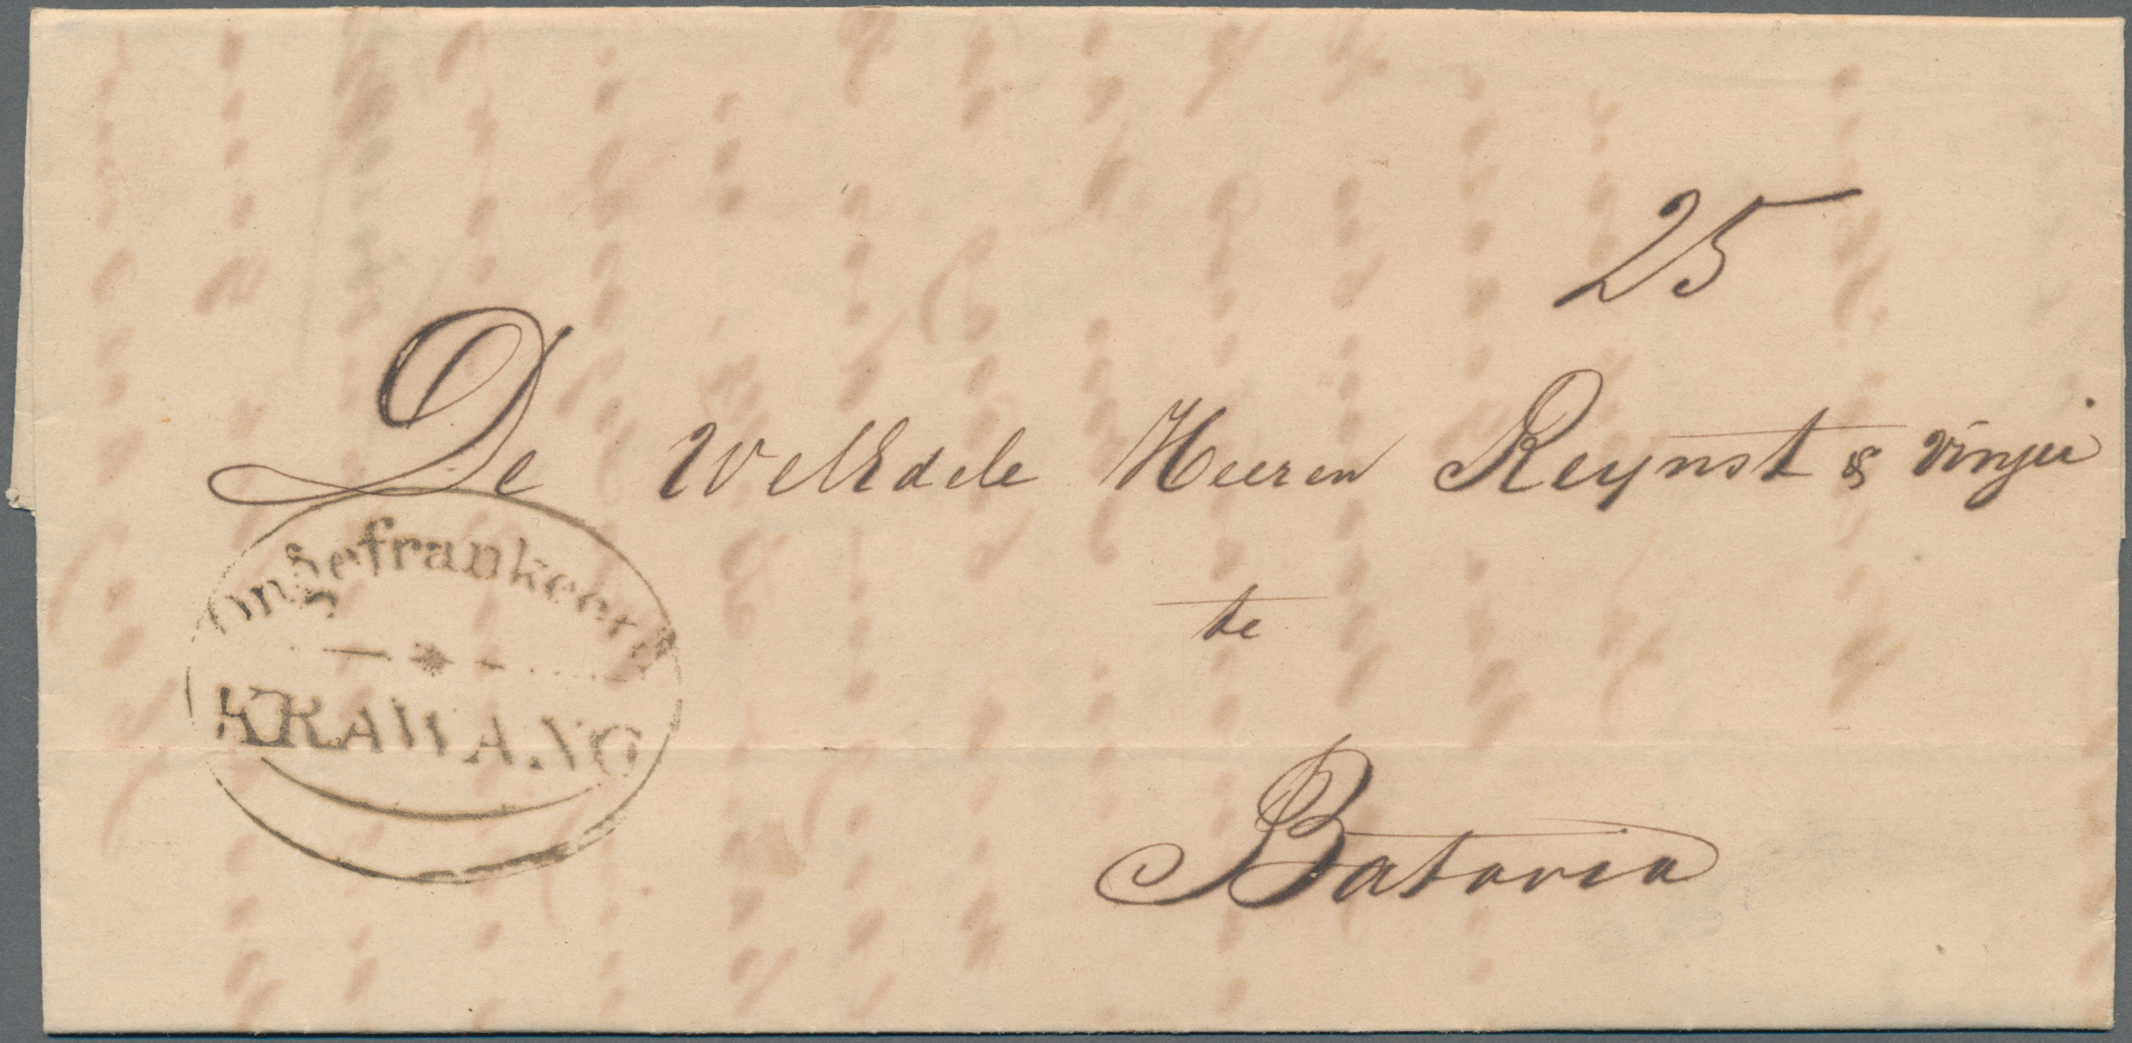 25
De WelEdele Heeren Reynst & Vinju
te
Batavia
Ongefrankeerd
KRAWANG